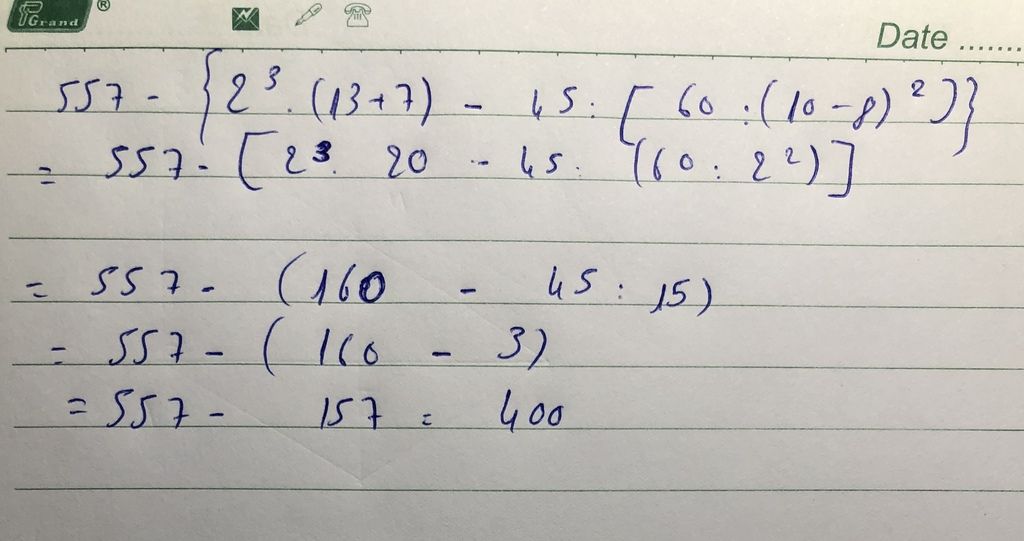 Grand ®
Date .......
557 - {2³ . (13+7) - 45 : [60 : (10-8)²]}
= 557 - [2³ . 20 - 45 : (60 : 2²)]
= 557 - (160 - 45 : 15)
= 557 - (160 - 3)
= 557 - 157 = 400